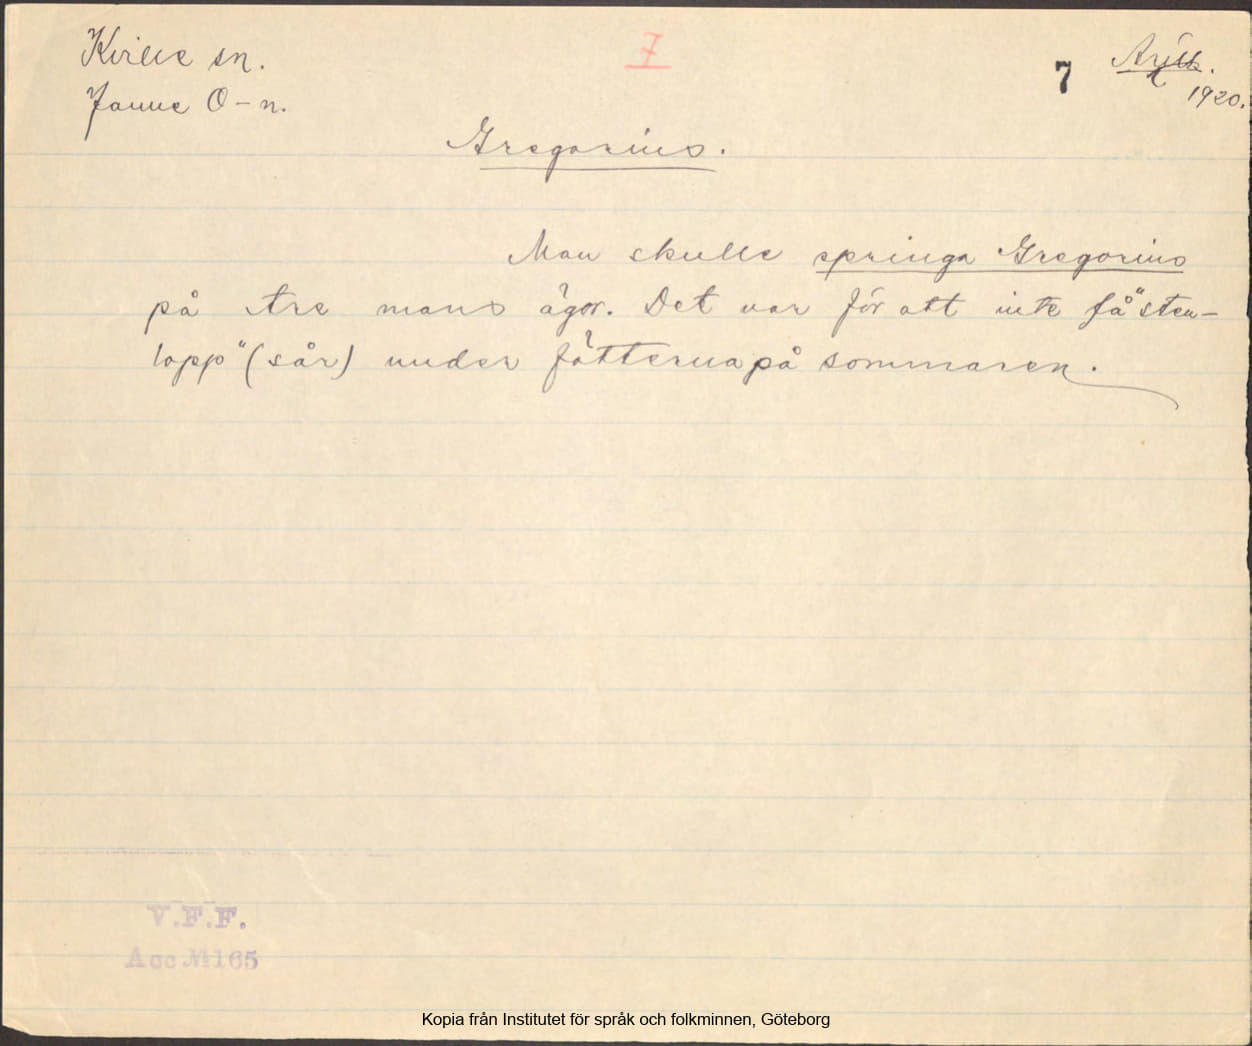 Kville sn.
7
7
1920.
Janne O-n.
Gregorius.
Man skulle springa Gregorius
på tre mans ägor. Det var för att inte få "sten-
lopp" (sår) under fötterna på sommaren.
V.F.F.
Acc № 165
Kopia från Institutet för språk och folkminnen, Göteborg